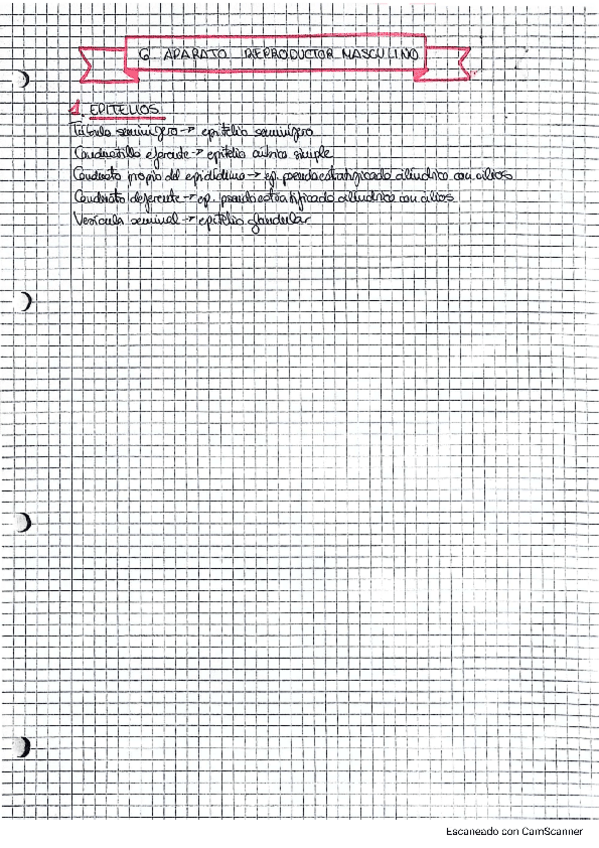 6. APARATO REPRODUCTOR MASCULINO
1. EPITELIOS
Túbulo seminífero → epitelio seminífero
Conductillo eferente → epitelio cúbico simple
Conducto propio del epidídimo → ep. pseudoestratificado cilíndrico con cilios
Conducto deferente → ep. pseudoestratificado cilíndrico con cilios
Vesícula seminal → epitelio glandular
Escaneado con CamScanner